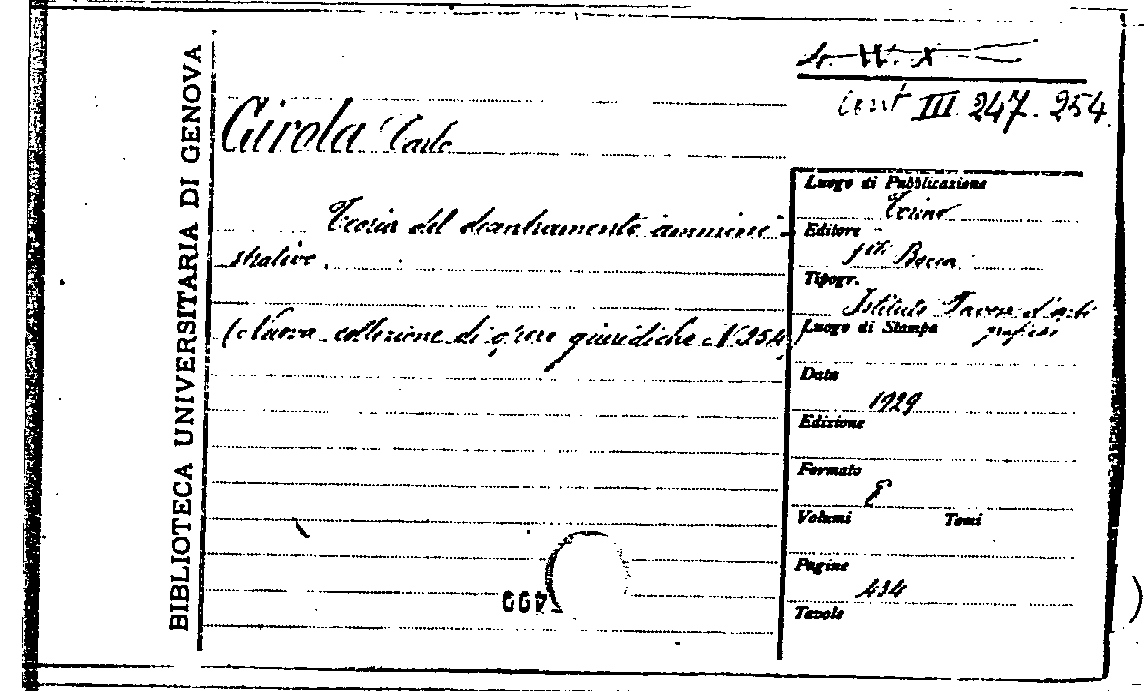 BIBLIOTECA UNIVERSITARIA DI GENOVA
Cont III 247. 254.
Girola Carlo
Teoria del decentramento ammini-
strativo.
(Nuova collezione di opere giuridiche N. 254)
Luogo di Pubblicazione
Torino
Editore
f.lli Bocca
Tipogr.
Istituto d'arti
grafiche
Luogo di Stampa
Data
1929
Edizione
Formato
8
Volumi Tomi
Pagine
434
Tavole